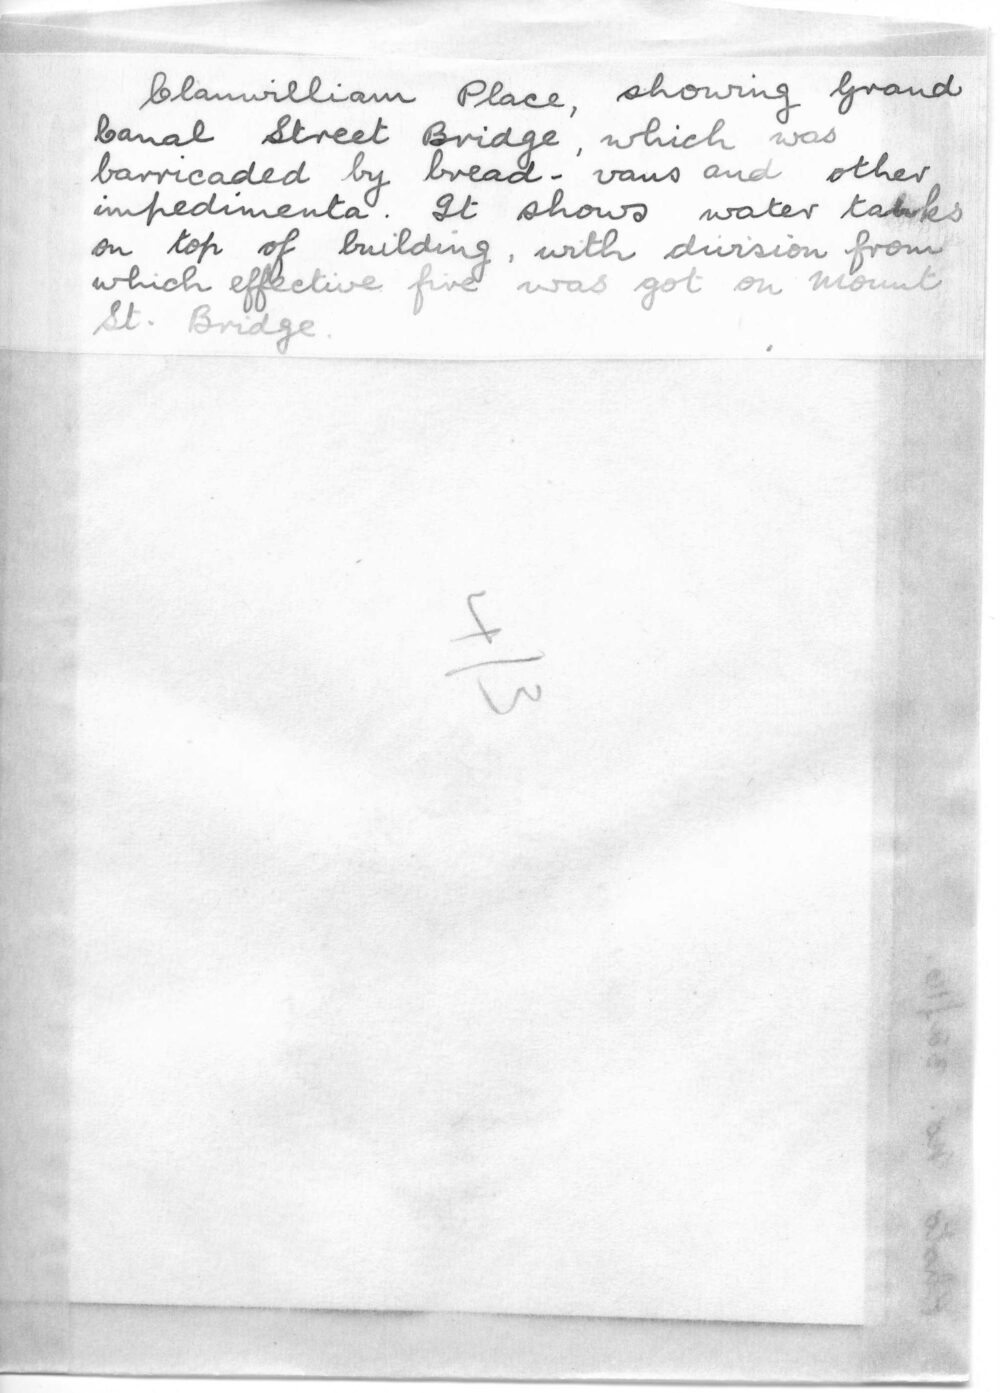 Clanwilliam Place, showing Grand
Canal Street Bridge, which was
barricaded by bread-vans and other
impedimenta. It shows water tanks
on top of building, with division from
which effective fire was got on Mount
St. Bridge.